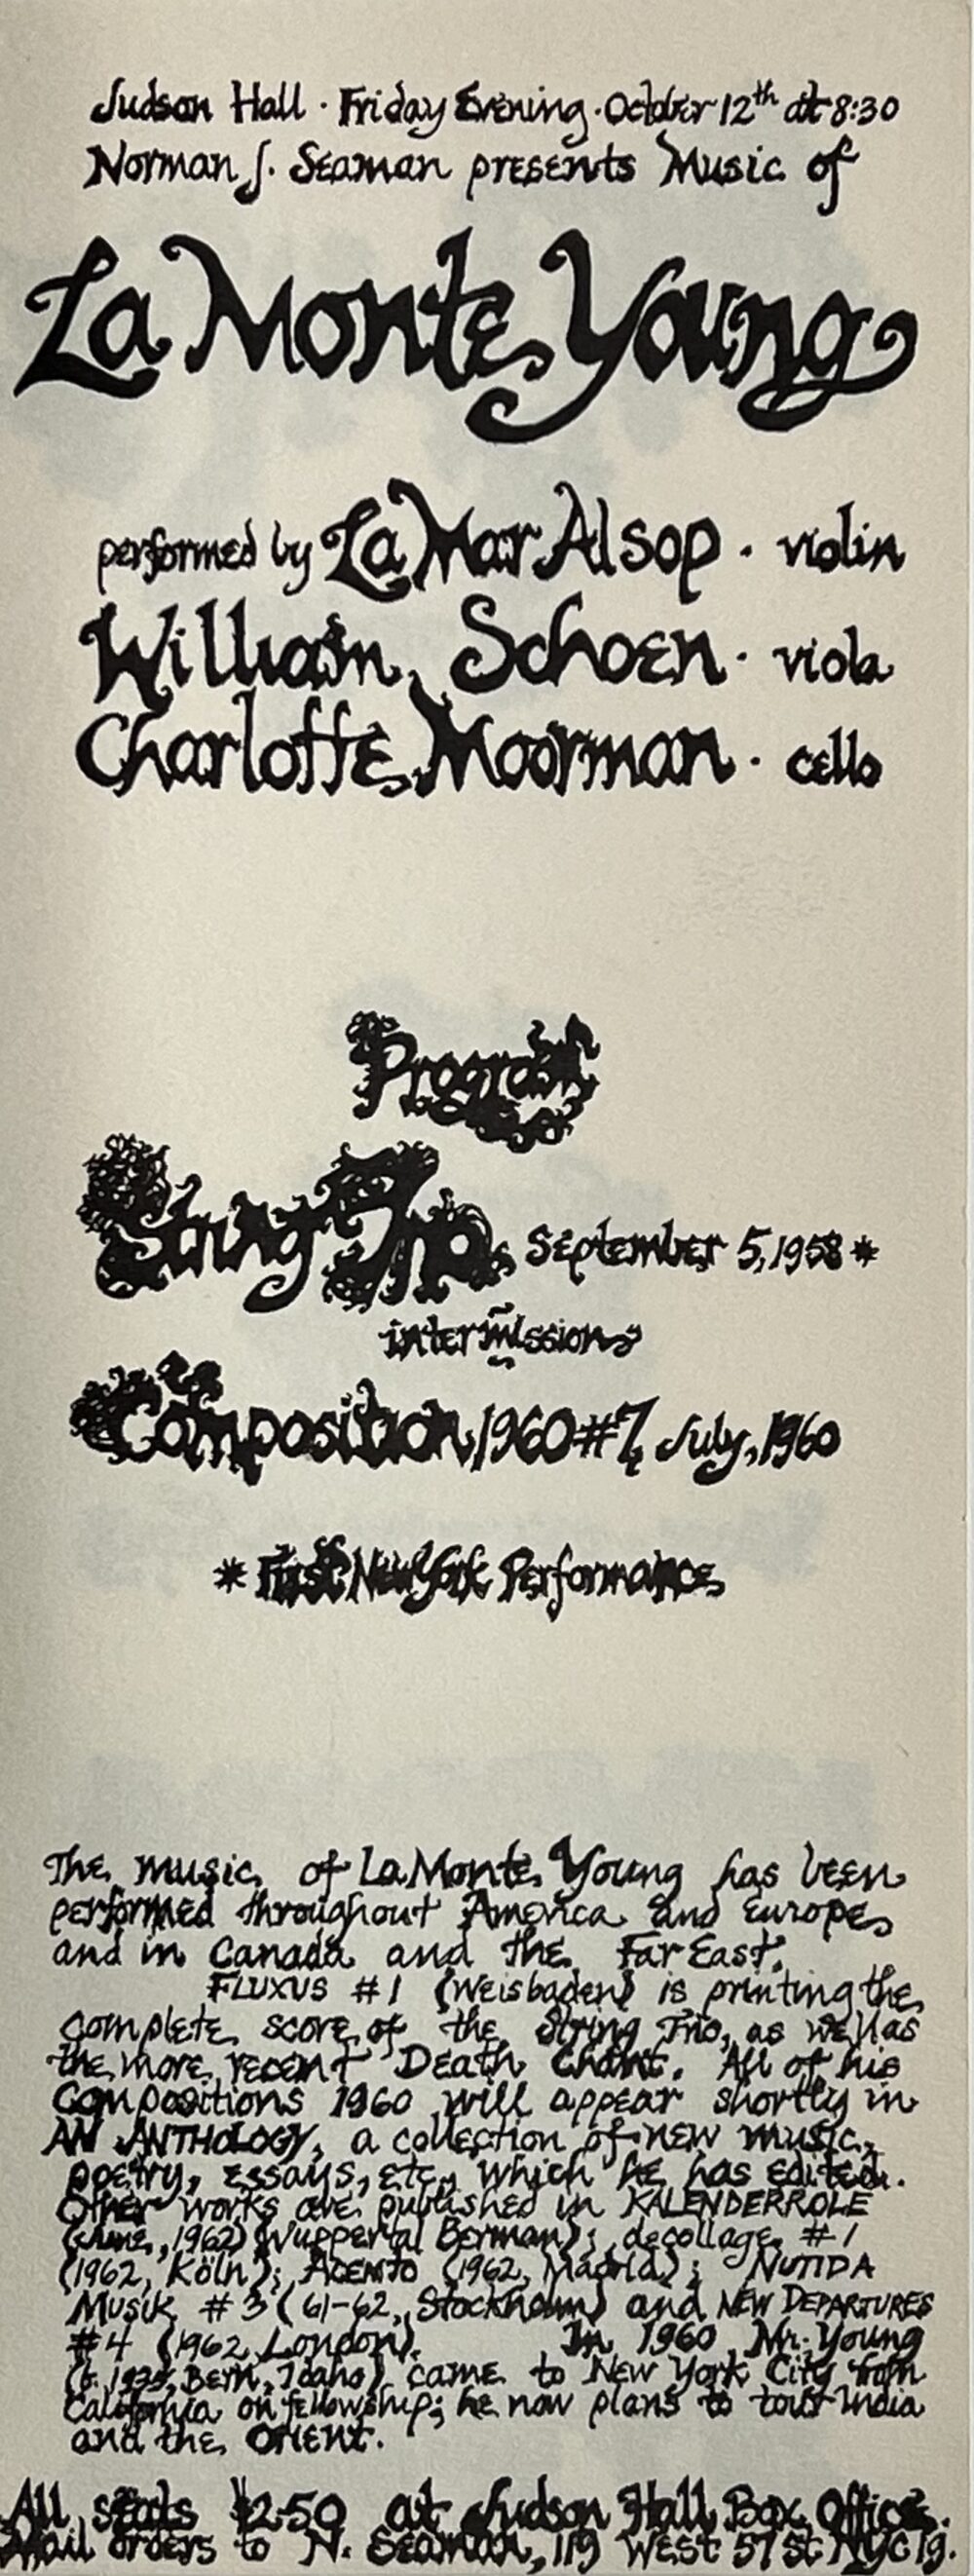 Judson Hall · Friday Evening · October 12th at 8:30
Norman J. Seaman presents Music of
La Monte Young
performed by La Mar Alsop · violin
William Schoen · viola
Charlotte Moorman · cello
Program
String Trio September 5, 1958 *
intermission
Composition 1960 #7, July, 1960
* First New York Performance
The music of La Monte Young has been
performed throughout America and Europe
and in Canada and the Far East.
FLUXUS #1 (Weisbaden) is printing the
complete score of the String Trio, as well as
the more recent Death Chant. All of his
Compositions 1960 will appear shortly in
AN ANTHOLOGY, a collection of new music,
poetry, essays, etc., which he has edited.
Other works are published in KALENDERROLE
(June, 1962) (Wuppertal Berman); decollage #1
(1962, Köln); Acento (1962, Madrid); NUTIDA
Musik #3 (61-62, Stockholm) and NEW DEPARTURES
#4 (1962, London). In 1960 Mr. Young
(b. 1935, Bern, Idaho) came to New York City from
California on fellowship; he now plans to tour India
and the Orient.
All seats $2.50 at Judson Hall Box Office.
Mail orders to N. Seaman, 119 West 57 St NYC 19.